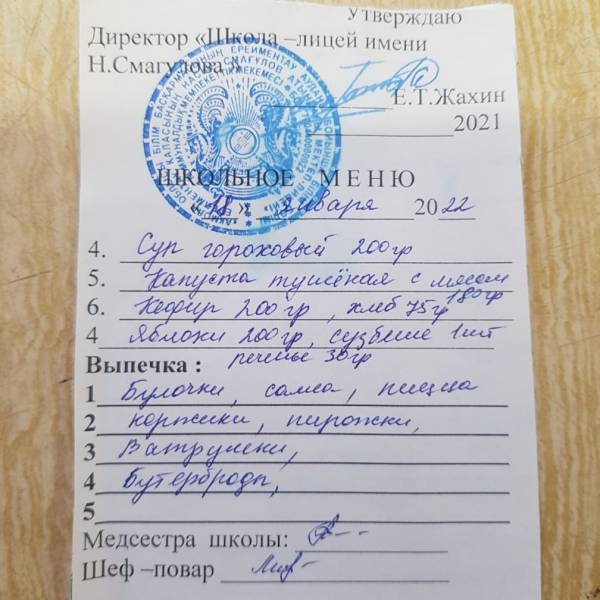 Утверждаю
Директор «Школа –лицей имени
Н.Смагулова»
Е.Т.Жахин
2021
ШКОЛЬНОЕ МЕНЮ
«18» января 2022
4. Суп гороховый 200гр
5. Капуста тушёная с мясом
180гр
6. Кефир 200гр, хлеб 75гр
4 Яблоки 200гр, сузбеше 1шт
печенье 30гр
Выпечка :
1 Булочки, самса, пицца
2 коржики, пирожки,
3 Ватрушки,
4 Бутерброды,
5
Медсестра школы:
Шеф –повар